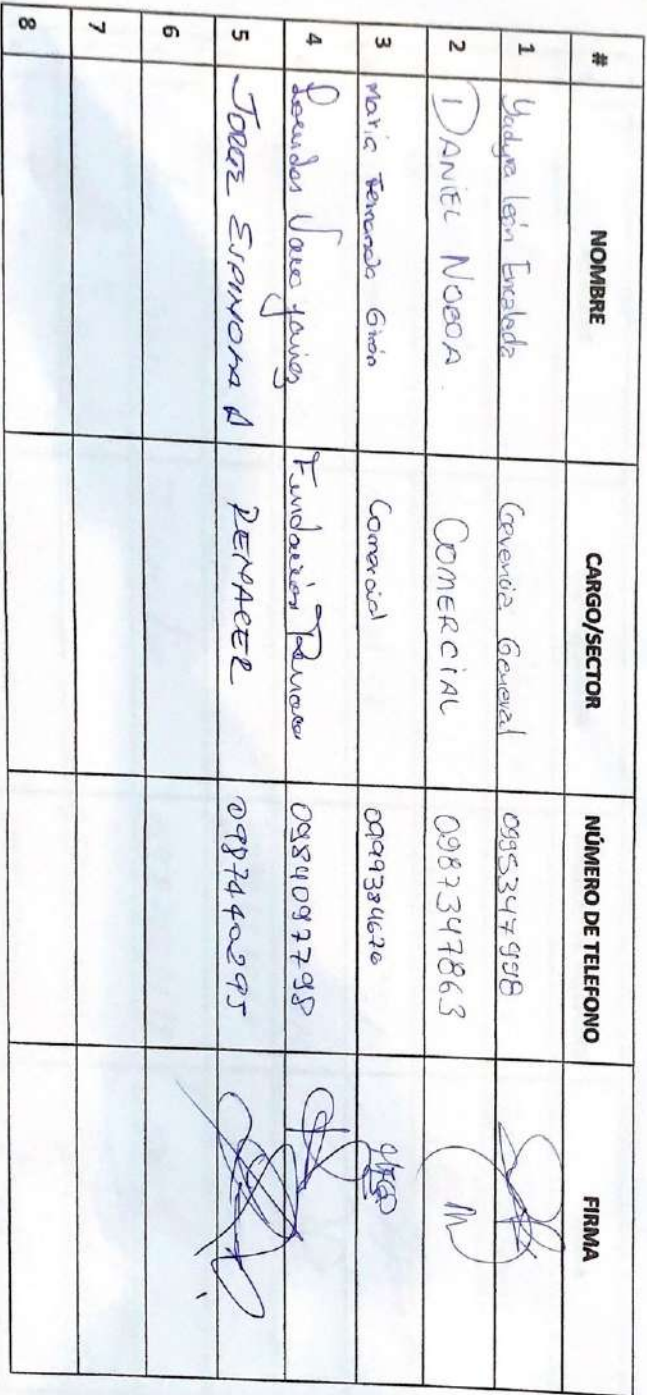 # NOMBRE CARGO/SECTOR NÚMERO DE TELEFONO FIRMA
1 Yadyra León Encalada Gerencia General 0995347998
2 DANIEL NOBOA. COMERCIAL 0987347863
3 Maria Fernanda Girón Comercial 0999384676
4 Lourdes Vaca Fundación 0984097798
5 JORGE ESPINOSA A REMACER 0987440295
6
7
8